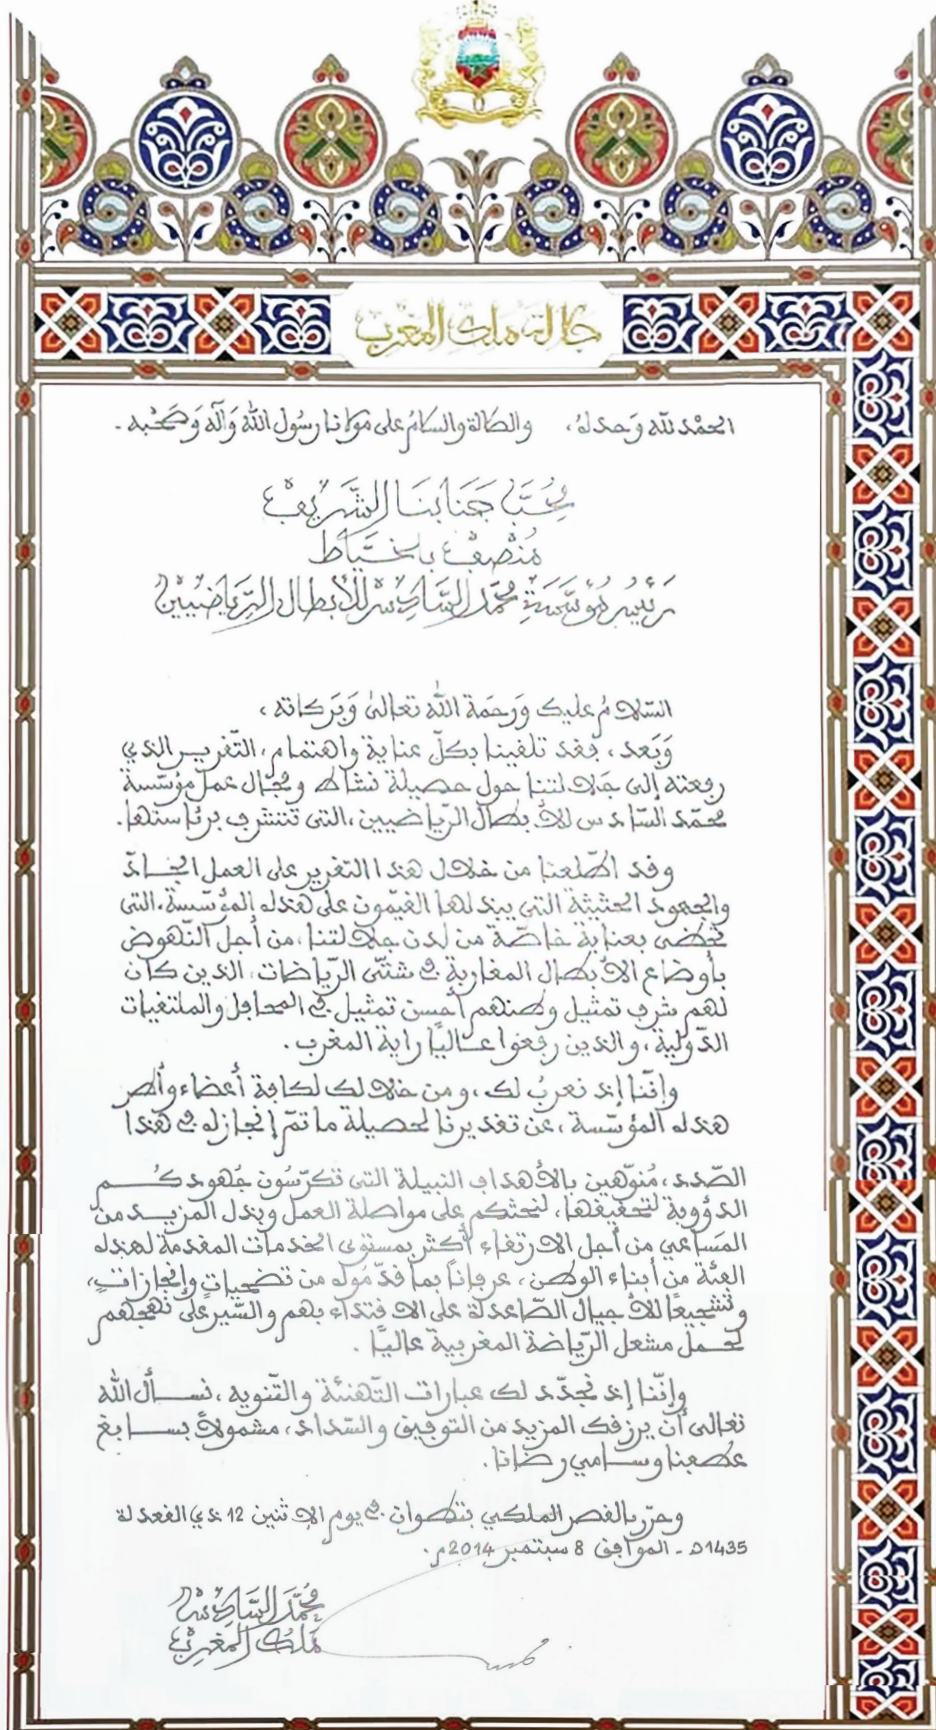 جلالة ملك المغرب
الحمد لله وحده، والصلاة والسلام على مولانا رسول الله وآله وصحبه.
محبّ جنابنا الشّريف
منصف بلخيّاط
رئيس مؤسّسة محمّد السّادس للأبطال الرّياضيين
السّلام عليك ورحمة الله تعالى وبركاته،
وبعد، فقد تلقينا بكلّ عناية واهتمام، التّقرير الذي
رفعته إلى جلالتنا حول حصيلة نشاط ومجال عمل مؤسّسة
محمّد السّادس للأبطال الرّياضيين، التي تتشرف برئاستها.
وقد اطّلعنا من خلال هذا التقرير على العمل الجادّ
والجهود الحثيثة التي يبذلها القيّمون على هذه المؤسّسة، التي
تحظى بعناية خاصّة من لدن جلالتنا، من أجل النّهوض
بأوضاع الأبطال المغاربة في شتّى الرّياضات، الذين كان
لهم شرف تمثيل وطنهم أحسن تمثيل في المحافل والملتقيات
الدّولية، والذين رفعوا عاليًا راية المغرب.
وإنّنا إذ نعربُ لك، ومن خلالك لكافة أعضاء وأطر
هذه المؤسّسة، عن تقديرنا لحصيلة ما تمّ إنجازه في هذا
الصّدد، مُنوّهين بالأهداف النبيلة التي تكرّسُون جُهودكُم
الدؤوبة لتحقيقها، لنحثكم على مواصلة العمل وبذل المزيد من
المَساعي من أجل الارتقاء أكثر بمستوى الخدمات المقدمة لهذه
الفئة من أبناء الوطن، عرفاناً بما قدّموه من تضحيات وإنجازاتٍ،
وتشجيعًا للأجيال الصّاعدة على الاقتداء بهم والسّير على نهجهم
لحمل مشعل الرّياضة المغربية عاليًا.
وإنّنا إذ نجدّد لك عبارات التّهنئة والتّنويه، نسأل الله
تعالى أن يرزقك المزيد من التوفيق والسّداد، مشمولاً بسابغ
عطفنا وسامي رضانا.
وحرّر بالقصر الملكي بتطوان في يوم الاثنين 12 ذي القعدة
1435ه - الموافق 8 سبتمبر 2014م.
محمّد السّادس
ملك المغرب